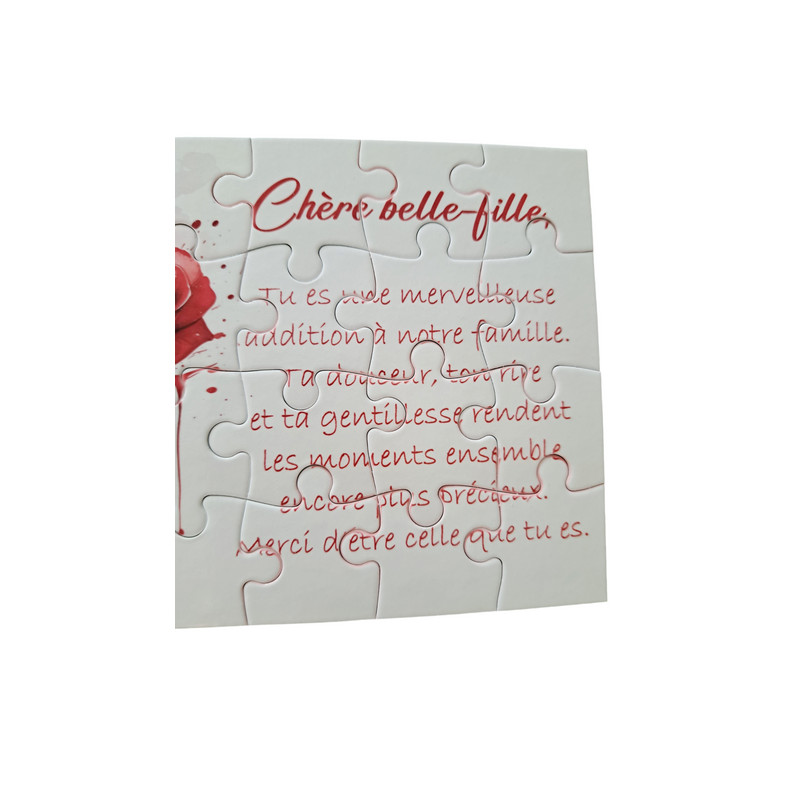 Chère belle-fille,
Tu es une merveilleuse
addition à notre famille.
Ta douceur, ton rire
et ta gentillesse rendent
les moments ensemble
encore plus précieux.
Merci d'être celle que tu es.